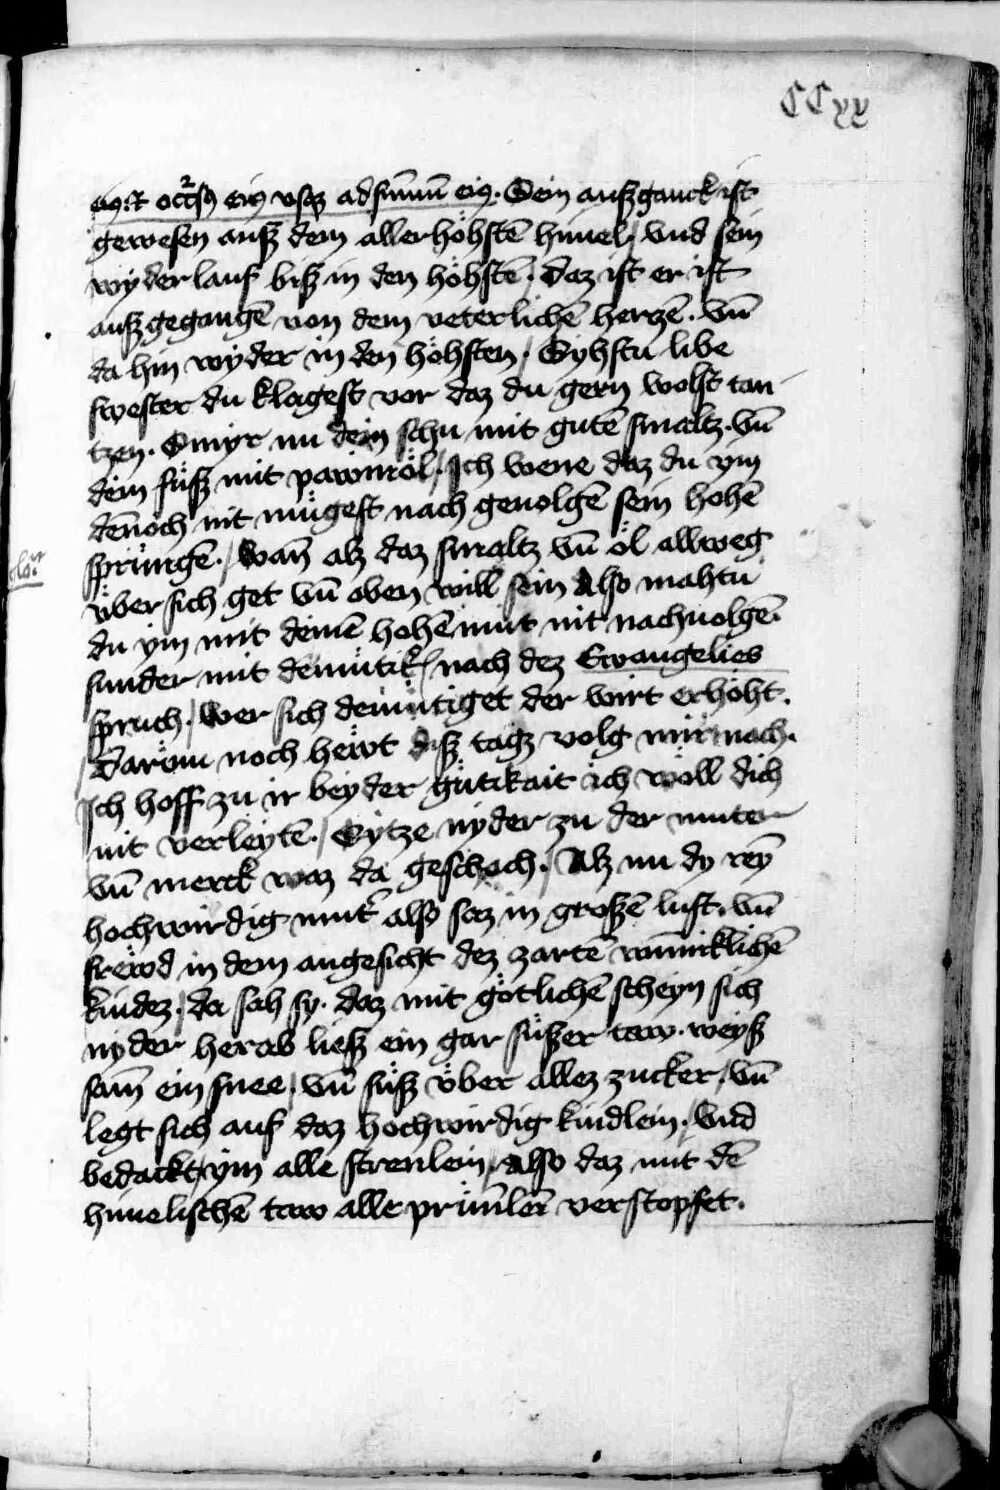 CCxx
eiꝯ. et occ̄sꝯ eiꝯ vsqꝫ ad sūmū eiꝯ. Sein auszganck ist
gewesen ausz dem aller höhstē himel / vnd sein
wyderlauf bisz in den höhstē. Daz ist er ist
auszgegangē von dem veterlichē herzē. vn̄
da hin wyder in den höhsten / Syhstu libe
swester du klagest vor daz du gern wolst tan
tzen. Smyr nu dein schu mit gutē smaltz. vn̄
dein füsz mit pawmöl / Ich wene daz du ym
den̄och nit mügest nach geuolgē sein hohē
sprüngē. / Wan̄ alz daz smaltz vn̄ öl allweg
über sich get vn̄ oben will sein Also mahtu
du ym mit deinē hohē mut nit nachuolgē.
sunder mit demütik̄ / nach dez Ewangelies
spruch. / Wer sich demütiget der wirt erhöht.
/ Darüm noch hewt disz tagz volg mir nach.
Ich hoff zu ir beyder gütikait ich wöll dich
nit verleytē. / Sytze nyder zu der muter
vn̄ merck waz da geschach. / Alz nu dy reỹ
hochwirdig mut̄ also saz in groszē lust. vn̄
frewd in dem angesicht dez zartē wūnicklichē
kindez. / da sah sy. daz mit götlichē scheyn sich
nyder herab liesz ein gar süszer taw. weysz
sam̄ ein snee / vn̄ süsz über allez zucker / vn̄
legt sich auf daz hochwirdig kindlein. / Vnd
bedackt ym alle strenlein / Also daz mit dē
himelischē taw alle prün̄lein verstopfet.